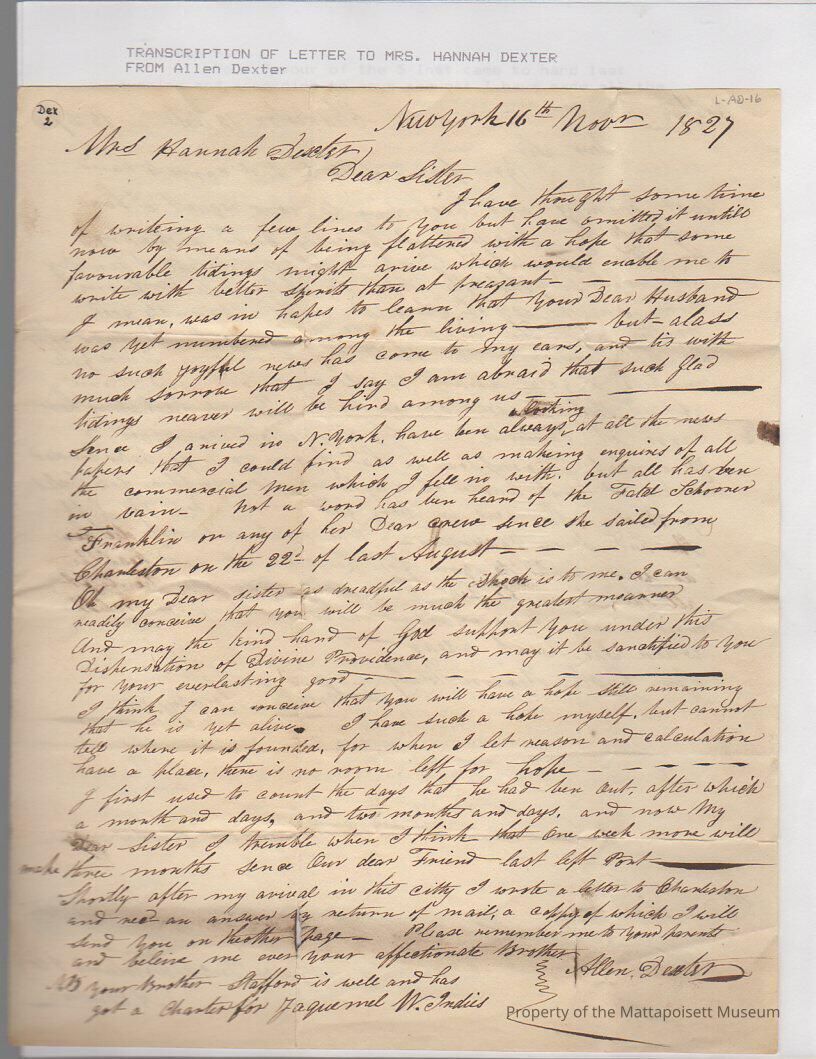 TRANSCRIPTION OF LETTER TO MRS. HANNAH DEXTER
FROM Allen Dexter
L-AD-16
Dex
2
New York 16th Novr 1827
Mrs Hannah Dexter
Dear Sister
I have thought some time
of writeing a few lines to you but have omitted it untill
now by means of being flattered with a hope that some
favourable tidings might arive which would enable me to
write with better spirits than at preazant —
I mean, was in hopes to learn that your Dear Husband
was yet numbered among the living — but alass
no such joyful news has come to my ears, and tis with
much sorrow that I say I am abraid that such glad
tidings neaver will be hird among us —
looking
Sence I arived in N. York. have ben always at all the news
papers that I could find as well as makeing enquires of all
the commercial men which I fell in with. but all has ben
in vain — Not a word has ben heard of the Fatal Schooner
Franklin or any of her Dear crew sence she sailed from
Charleston on the 22d of last August — — — —
Oh my Dear sister as dreadful as the Shock is to me. I can
readily conceive that you will be much the greatest moarner
And may the kind hand of God support you under this
Dispensation of Divine Providence, and may it be sanctified to you
for your everlasting good — — — —
I think I can conceive that you will have a hope still remaining
that he is yet alive. I have such a hope myself. but cannot
tell where it is founded, for when I let reason and calculation
have a place, there is no room left for hope — — — —
I first used to count the days that he had ben out, after which
a month and days, and two months and days, and now My
Dear Sister I tremble when I think that one week more will
make three months sence Our dear Friend last left Port —
Shortly after my arival in this citty I wrote a letter to Charleston
and recd an answer by return of mail, a coppy of which I will
send you on the other page — Please remember me to your parents
and beleive me ever your affectionate Brother
Allen Dexter
NB your Brother Stafford is well and has
got a Charter for Jaquemel W. Indies
Property of the Mattapoisett Museum